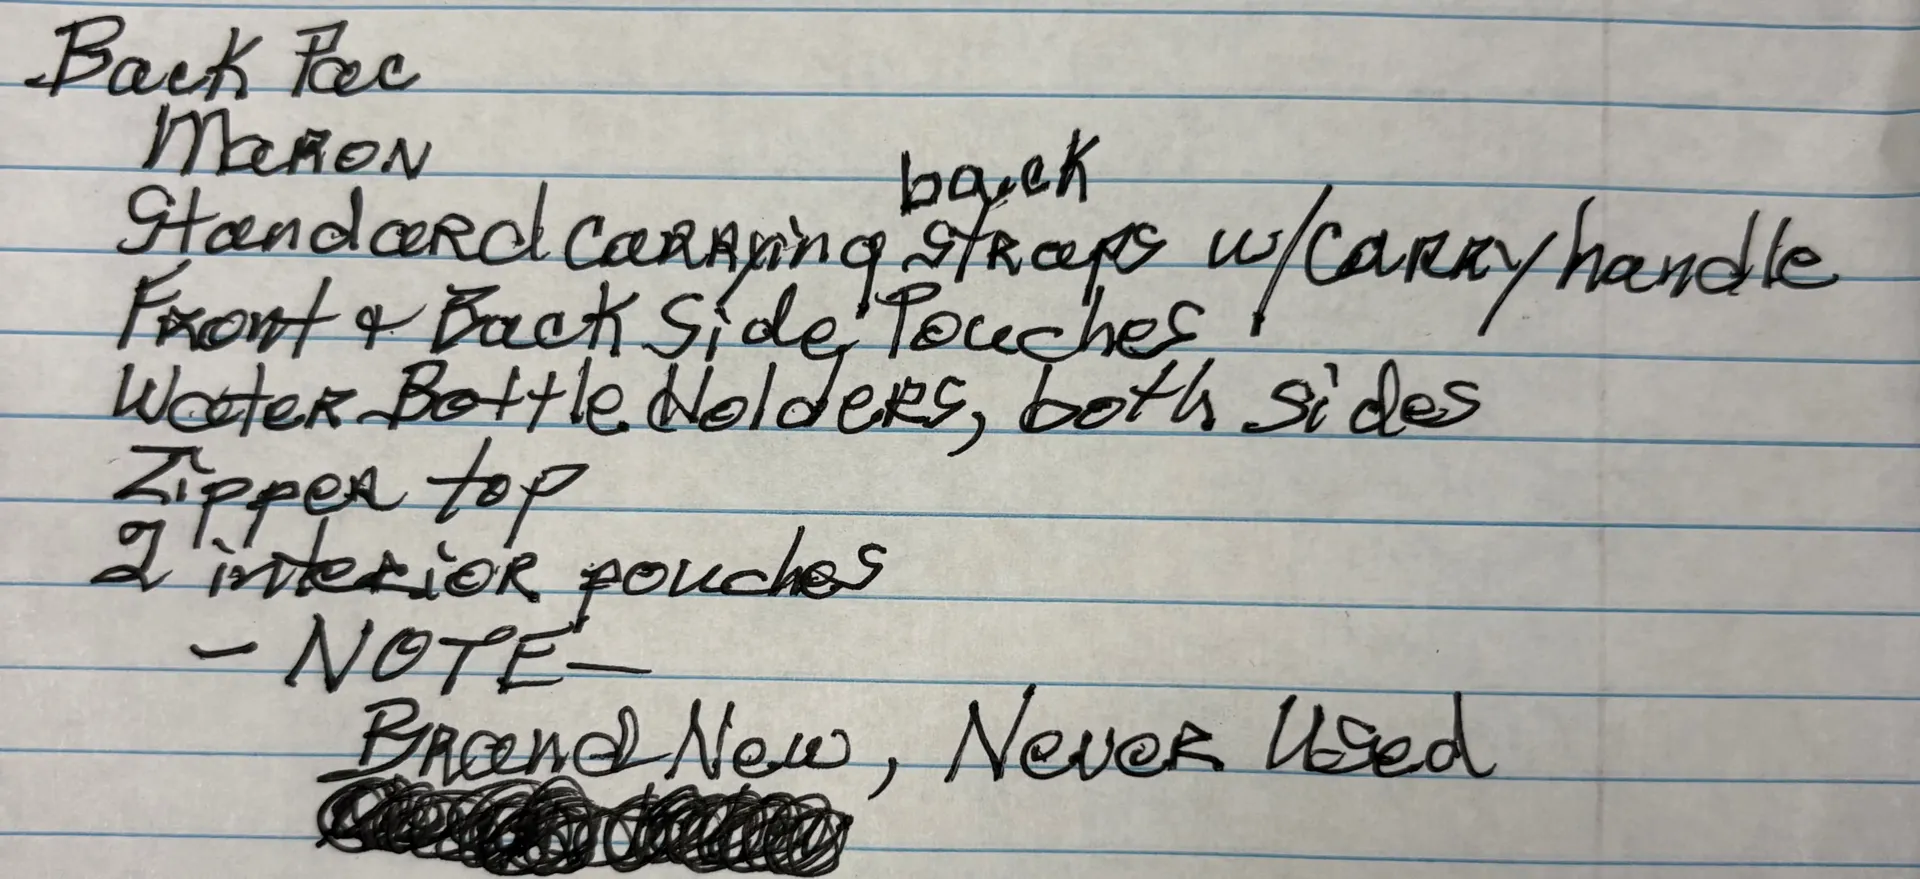 Back Pac
Maron
Standard carrying back straps w/carry handle
Front & Back Side Pouches
Water Bottle Holders, both sides
Zipper top
2 interior pouches
- NOTE -
Brand New, Never Used